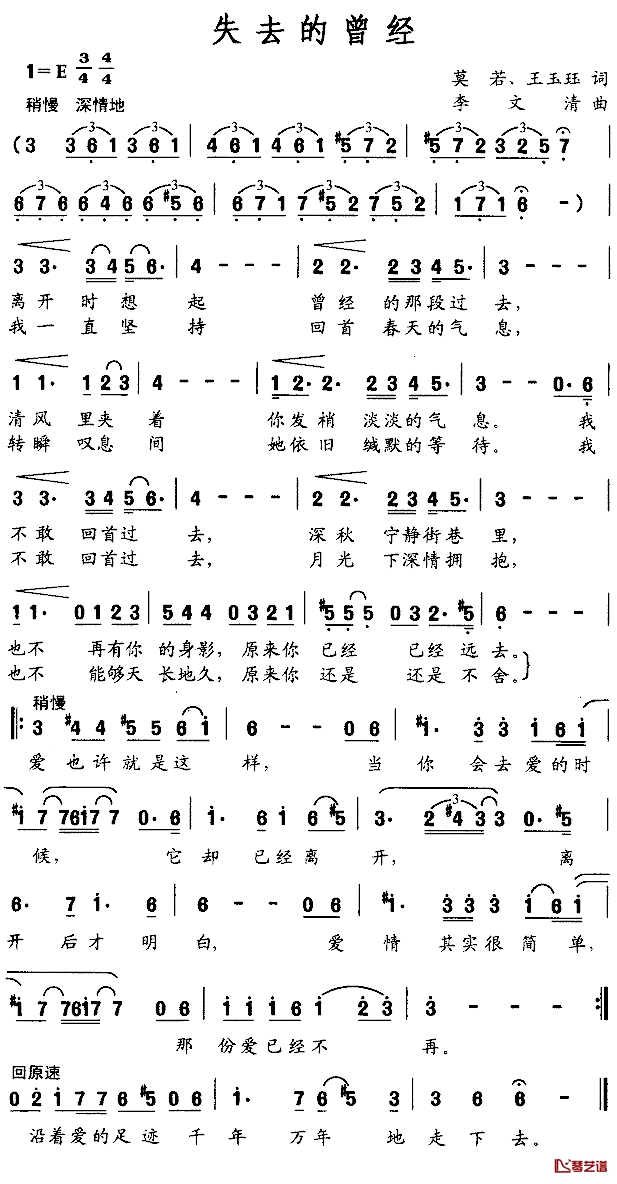 失去的曾经
1=E 3/4 4/4
莫若、王玉珏 词
稍慢 深情地
李文清 曲
(3 361 361 | 461 461 #572 | #572 325 7 |
676 646 6#56 | 671 7#52 752 | 171 6 - )|
3 3· 345 6· | 4 - - - | 2 2· 234 5· | 3 - - - |
离开 时想 起 曾经 的那段过 去,
我一 直坚 持 回首 春天的气 息,
1 1· 123 | 4 - - - | 12· 2· 234 5· | 3 - - 0·6 |
清风 里夹 着 你发梢 淡淡的气 息。 我
转瞬 叹息 间 她依旧 缄默的等 待。 我
3 3· 345 6· | 4 - - - | 2 2· 234 5· | 3 - - - |
不敢 回首过 去, 深秋 宁静街巷 里,
不敢 回首过 去, 月光 下深情拥 抱,
1 1· 0123 | 544 0321 | #555 032·#5 | 6 - - - |
也不 再有你 的身影, 原来你 已经 已经远去。
也不 能够天 长地久, 原来你 还是 还是不舍。
稍慢
|: 3 #44 #5561 | 6 - - 06 | #1· 33 161 |
爱 也许就是这 样, 当 你 会去爱的时
#17 76177 0·6 | 1· 61 6#5 | 3· 2#433 0·#5 |
候, 它 却 已经离 开, 离
6· 7 1· 6 | 6 - - 06 | #1· 333 161 |
开 后才 明 白, 爱 情 其实很简 单,
#17 76177 - 0 | 11161 123 | 3 - - - :|
那 份爱已经不 再。
回原速
02177 6#506 | 1· 76#5 3 | 3 6 6 - ||
沿着爱的 足迹 千 年 万年 地 走下去。
琴艺谱